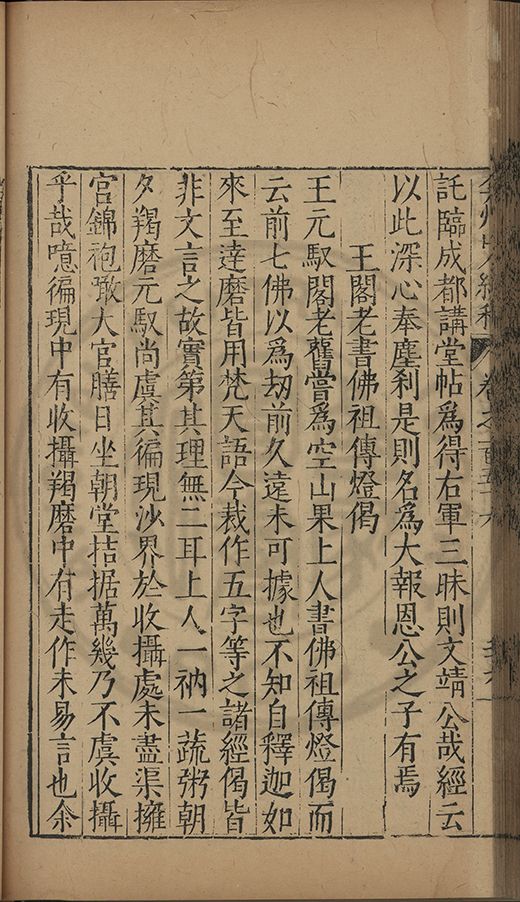 弇州山人續稿 卷之一百五十六
託臨成都講堂帖爲得右軍三昧則文靖公哉經云
以此深心奉塵剎是則名爲大報恩公之子有焉
王閣老書佛祖傳燈偈
王元馭閣老舊嘗爲空山果上人書佛祖傳燈偈而
云前七佛以爲刼前久遠未可據也不知自釋迦如
來至達磨皆用梵天語今裁作五字等之諸經偈皆
非文言之故實第其理無二耳上人一衲一蔬粥朝
夕羯磨元馭尚虞其徧現沙界於收攝處未盡渠擁
宮錦袍噉大官膳日坐朝堂拮据萬幾乃不虞收攝
乎哉噫徧現中有收攝羯磨中有走作未易言也余